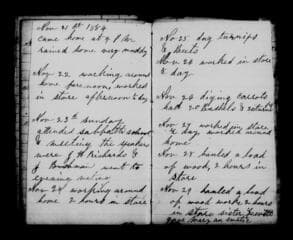 Nov 21st 1884
came home at 9 P.M.
rained some very muddy
Nov 22 working around
home forenoon worked
in store afternoon
Nov 23rd Sunday
attended sabbath school
& meeting the speakers
were J H Richards &
J went to
evening meeting
Nov 24 working around
home 2 hours in store
No 25 dug turnips
& Beets
Nov 26 worked in store
½ day
Nov 26 diging carrots
had 20 bushels &
Nov 27 worked in store
½ day worked around
home
Nov 28 hauled a load
of wood, 2 hours in
store
Nov 29 hauled a load
of wood work 2 hours
in store sister
gave Mary an